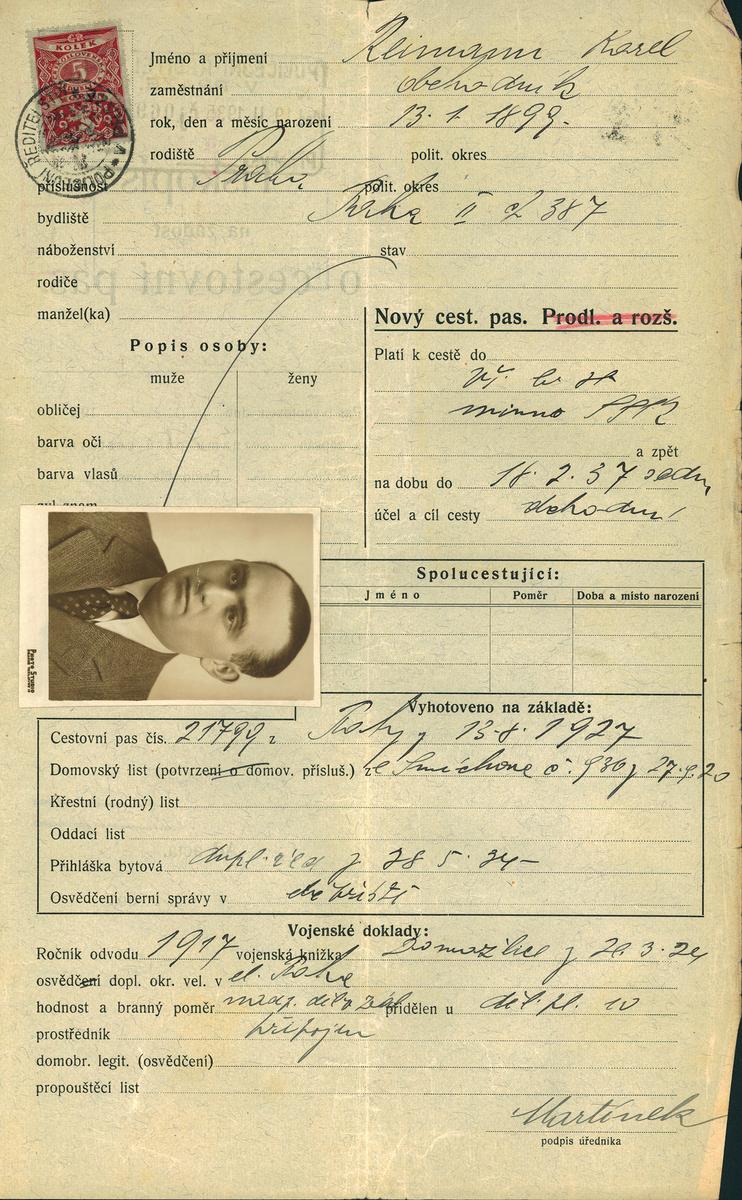 KOLEK
5
Jméno a příjmení Reimann Karel
zaměstnání obchodník
rok, den a měsíc narození 13. 1. 1899.
rodiště polit. okres
Praha
příslušnost polit. okres
bydliště Praha II čp 387
náboženství stav
rodiče
manžel(ka)
Nový cest. pas. Prodl. a rozš.
Popis osoby:
muže ženy
obličej
barva očí
barva vlasů
Platí k cestě do
mimo
a zpět
na dobu do 18. 2. 37
účel a cíl cesty obchodní
Spolucestující:
Jméno Poměr Doba a místo narození
Vyhotoveno na základě:
Cestovní pas čís. 21799 z Prahy z 13.8. 1927
Domovský list (potvrzení o domov. přísluš.) ze Smíchova č. 930 z 27.9.20
Křestní (rodný) list
Oddací list
Přihláška bytová z 28 5. 34
Osvědčení berní správy v
Vojenské doklady:
Ročník odvodu 1917 vojenská knížka Domažlice z 20.3.24
osvědčení dopl. okr. vel. v Praha
hodnost a branný poměr přidělen u děl. pl. 10
prostředník připojen
domobr. legit. (osvědčení)
propouštěcí list
Martínek
podpis úředníka